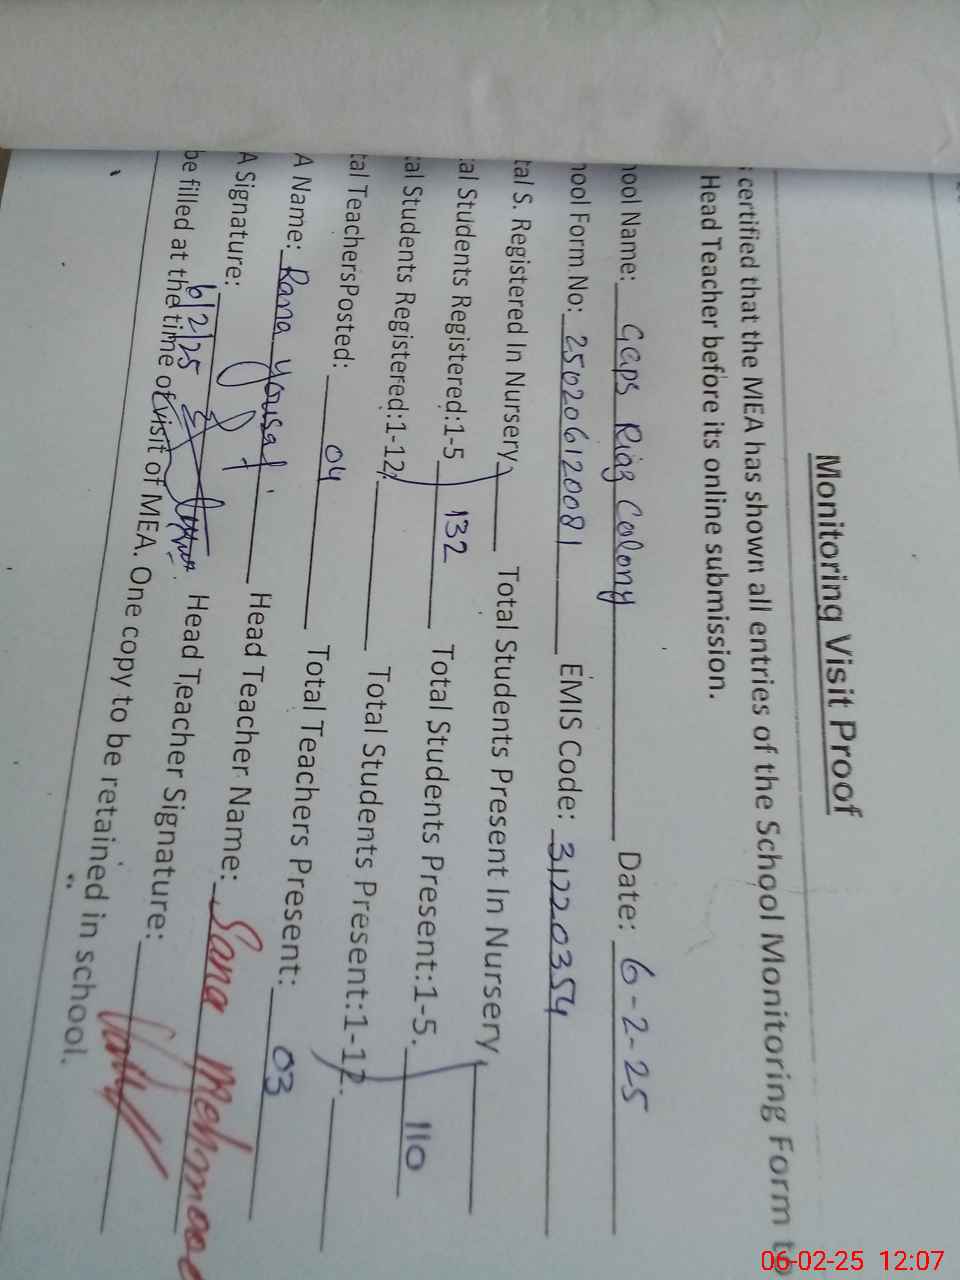 Monitoring Visit Proof
certified that the MEA has shown all entries of the School Monitoring Form to
Head Teacher before its online submission.
hool Name: Gaps Riaz Colony Date: 6-2-25
hool Form No: 250206120081 EMIS Code: 31220354
tal S. Registered In Nursery Total Students Present In Nursery
al Students Registered:1-5 132 Total Students Present:1-5. 110
al Students Registered:1-12. Total Students Present:1-12.
tal TeachersPosted: 04 Total Teachers Present: 03
A Name: Rana yousaf Head Teacher Name: Sana Mehmood
A Signature: Head Teacher Signature:
6/2/25
be filled at the time of visit of MEA. One copy to be retained in school.
06-02-25 12:07